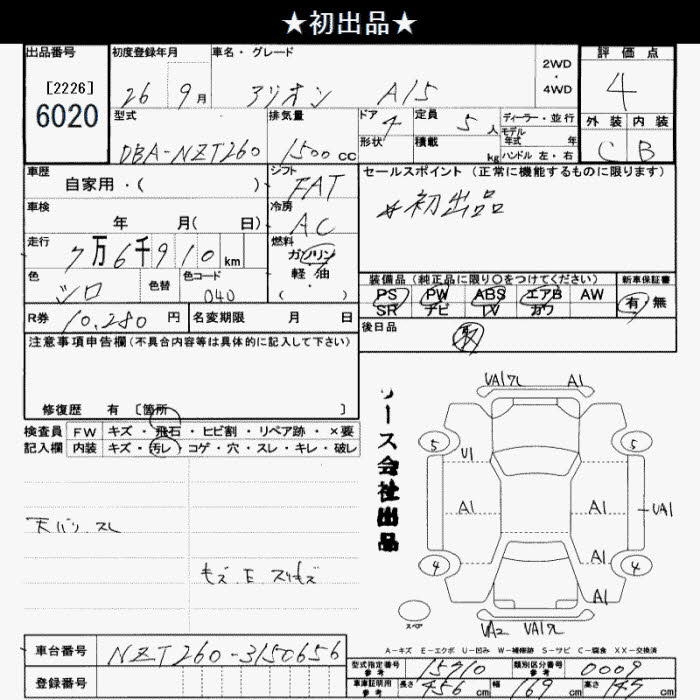 ★初出品★
出品番号 初度登録年月 車名・グレード 2WD・4WD 評価点
[2226]
6020
26 9月 アリオン A15 4
型式 排気量 ドア 4 定員 5人 ディーラー・並行
外装 内装
モデル年式 年
DBA-NZT260 1500cc 形状 積載 kg ハンドル 左・右 C B
車歴 シフト セールスポイント (正常に機能するものに限ります)
自家用・( ) FAT
車検 冷房 初出品
年 月( 日) AC
走行 燃料
7万6千910km ガソリン
軽油
( ・ )
色 色替 色コード 装備品 (純正品に限り○をつけてください) 新車保証書
シロ 040 PS PW ABS エアB AW 有 無
SR ナビ TV カワ
R券 10,280円 名変期限 月 日 後日品 取
注意事項申告欄(不具合内容等は具体的に記入して下さい)
修復歴 有 [箇所 ]
検査員 FW キズ・飛石・ヒビ割・リペア跡・×要
記入欄 内装 キズ・汚レ・コゲ・穴・スレ・キレ・破レ
リース会社出品
UA1 A1
5 5
U1
A1 A1 UA1
A1
4 4
A1
スペア
UA2
A-キズ E-エクボ U-凹み W-補修跡 S-サビ C-腐食 XX-交換済
車台番号 NZT260-3150656
登録番号
型式指定番号 参考 15910 類別区分番号 参考 0009
車庫証明用 参考 長さ 456cm 幅 169cm 高さ cm